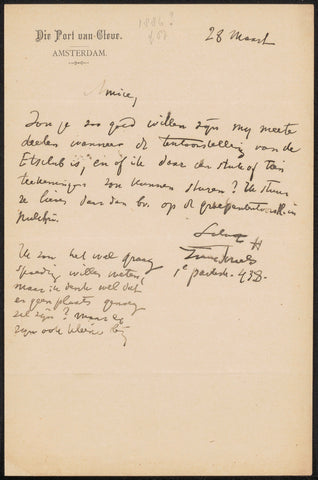 1886?
Die Port van Cleve.
AMSTERDAM.
28 Maart
Amice,
Zou je zoo goed willen zijn my mede te
deelen wanneer de tentoonstelling van de
Etsclub is, en of ik daar een stuk of tien
teekeningen zou kunnen sturen? Ik stuur
ze liever daar dan bv. op de in
Pulchri.
Isaac Israels
1e parkstr. 438.
Ik zou het wel graag
spoedig willen weten,
maar ik denk wel dat
er geen plaats genoeg
zal zijn? Maar er
zijn ook kleine bij